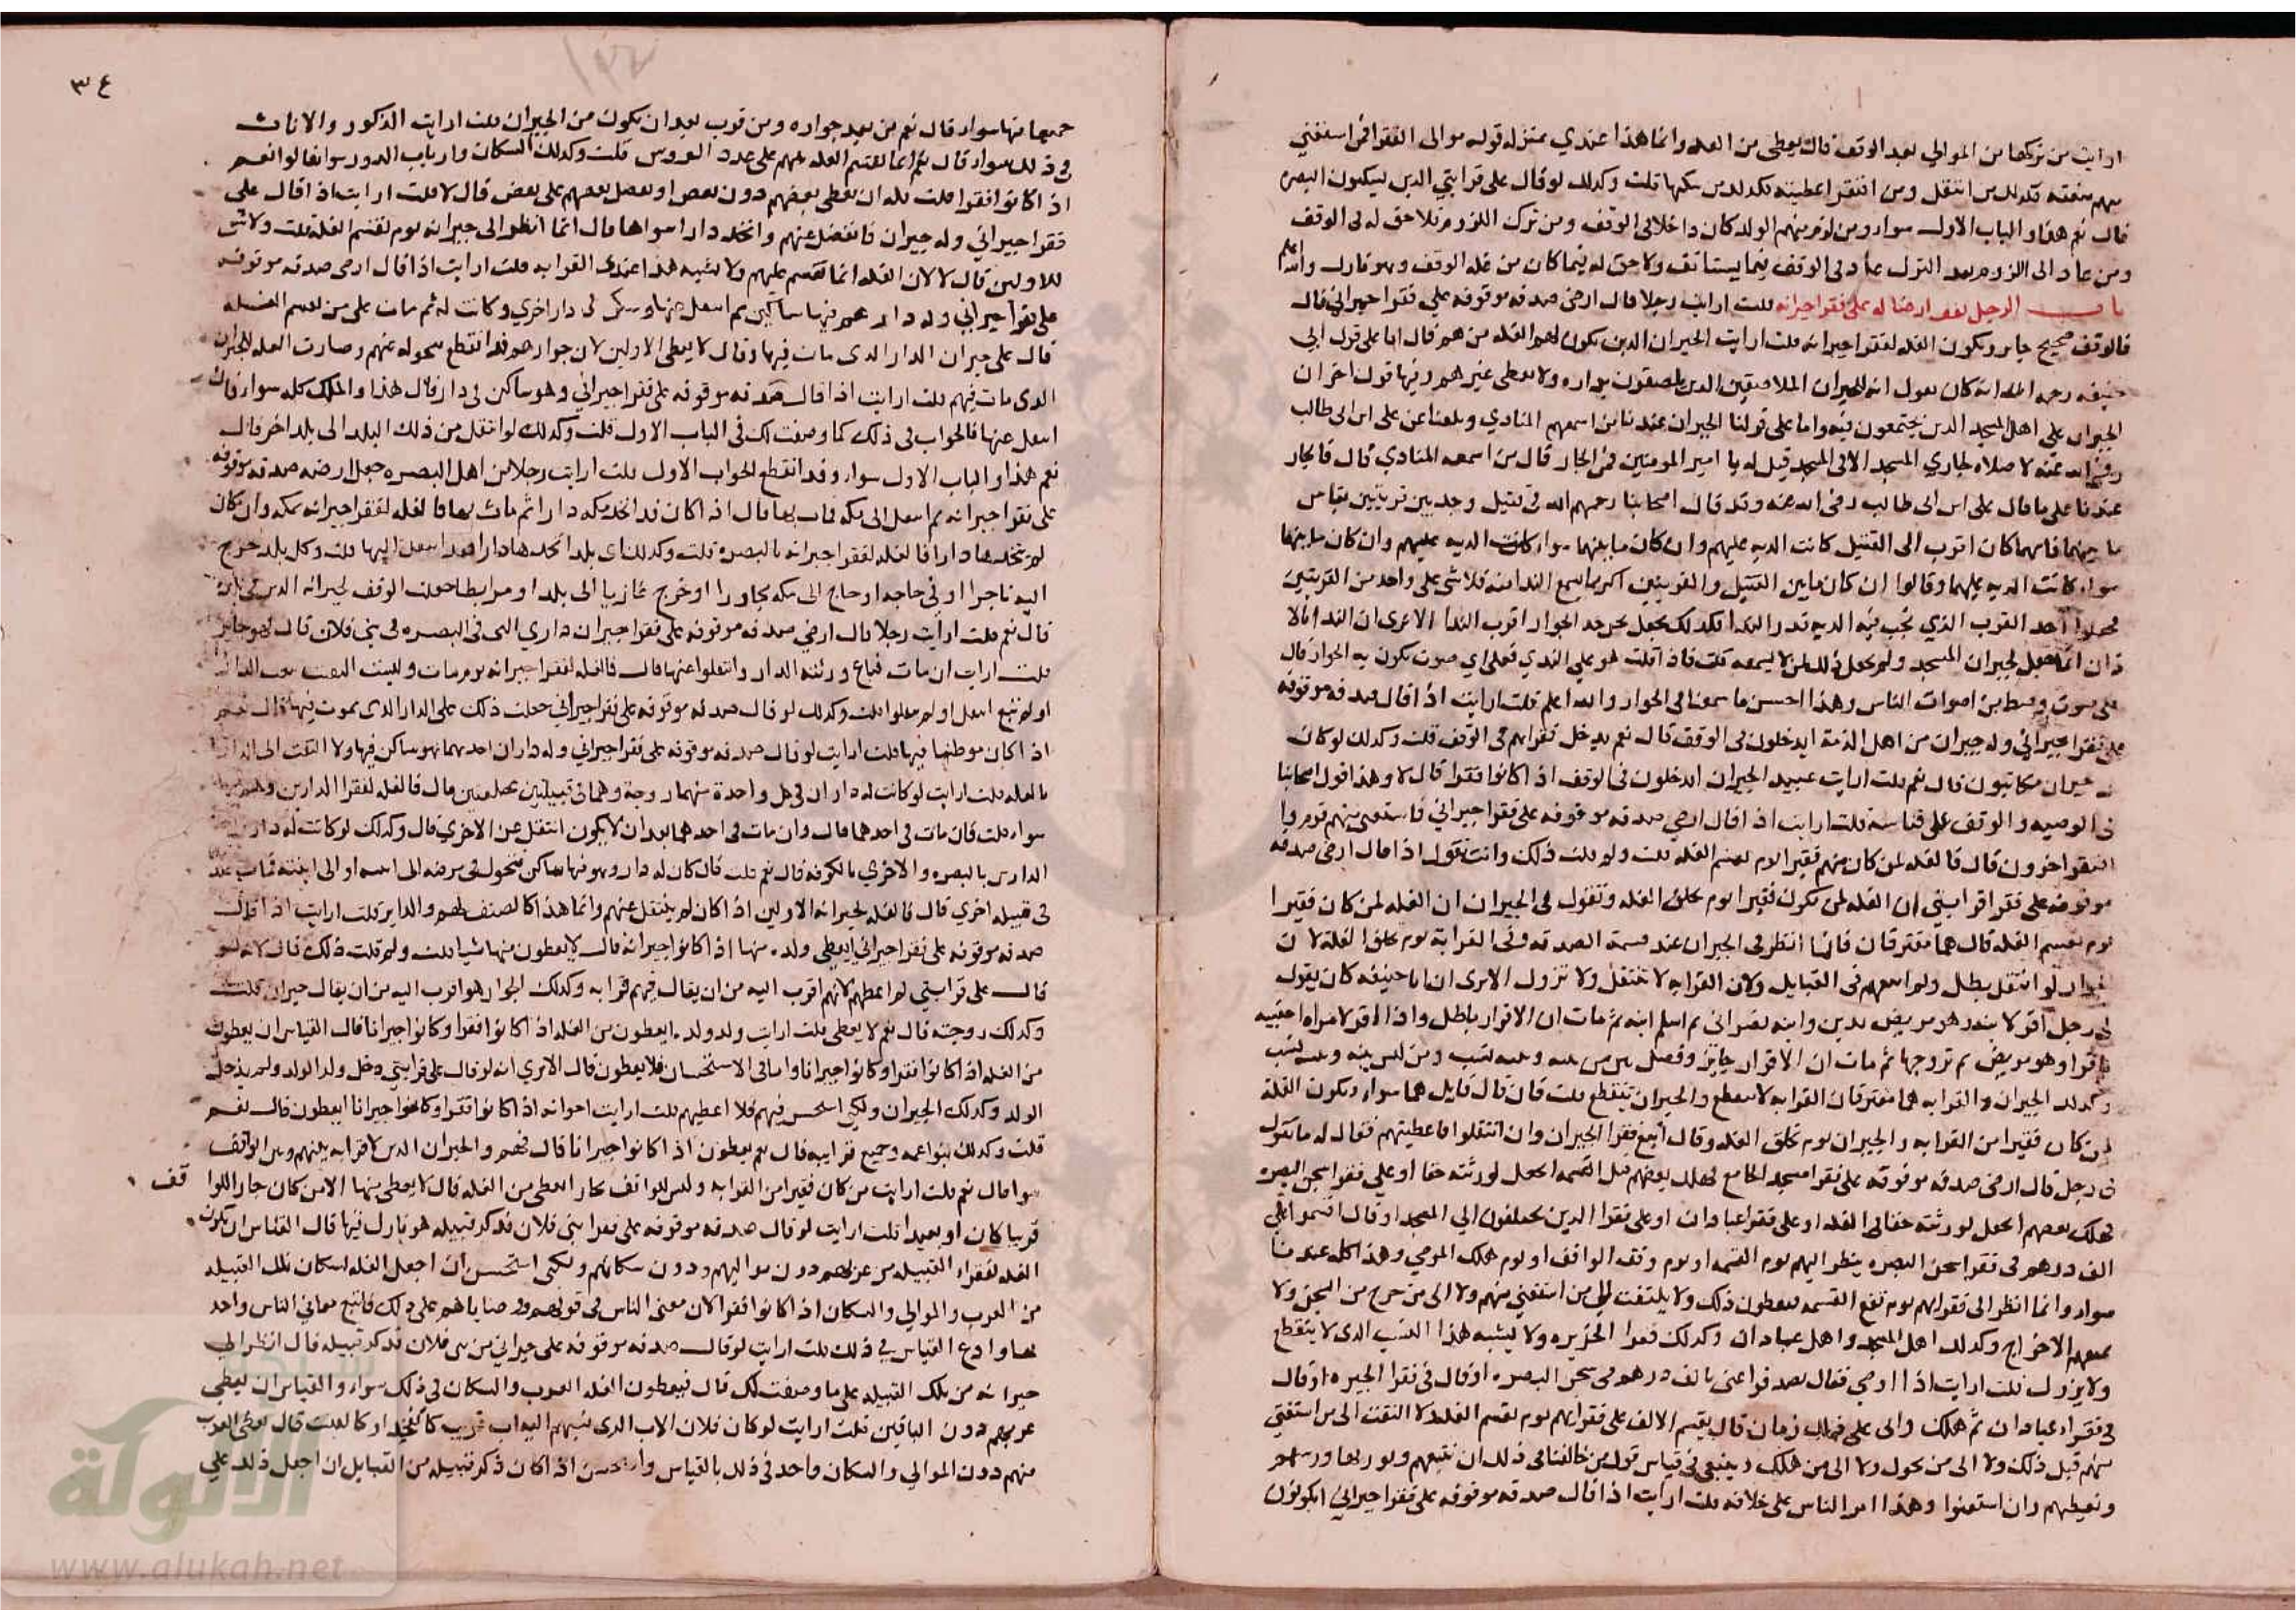 ارايت من تركها من الموالي بعد الوقف قال يعطى من الغله وانما هذا عندي بمنزلة قوله موالى الفقرا فمن استغنى
منهم منعته وكذلك من انتقل ومن افتقر اعطيته وكذلك من سكنها قلت وكذلك لو قال على قرابتي الذين يسكنون البصره
قال نعم هذا والباب الاول سواء ومن لزم منهم البلد كان داخلا في الوقف ومن ترك اللزوم فلا حق له في الوقف
ومن عاد الى اللزوم بعد الترك عاد في الوقف فيما يستانف ولا حق له فيما كان من غلة الوقف وهو تارك والله اعلم
باب الرجل يقف ارضا له على فقرا جيرانه قلت ارايت رجلا قال ارضي صدقه موقوفه على فقرا جيراني قال
فالوقف صحيح جايز وتكون الغله لفقرا جيرانه قلت ارايت الجيران الذين يكون لهم الغله من هم قال اما على قول ابي
حنيفه رحمه الله انه كان يقول انه للجيران الملاصقين الذين يلصقون بداره ولا يعطى غيرهم وفيها قول اخر ان
الجيران على اهل المسجد الذين يجتمعون فيه واما على قولنا الجيران عندنا من اسمعهم المنادي وبلغنا عن علي ابن ابي طالب
رضي الله عنه لا صلاه لجار المسجد الا في المسجد قيل له يا امير المومنين فمن الجار قال من اسمعه المنادي قال فالجار
عندنا على ما قال علي ابن ابي طالب رضي الله عنه وقد قال اصحابنا رحمهم الله في قتيل وجد بين قريتين يقاس
ما بينهما فايهما كان اقرب الى القتيل كانت الديه عليهم وان كان ما بينهما سواء كانت الديه عليهم وان كان ما بينهما
سواء كانت الديه عليهما وقالوا ان كان ما بين القتيل والقريتين اكثر ما يسمع الندا منه فلا شي على واحد من القريتين
فجعلوا احد القرب الذي تجب فيه الديه قدر الندا فكذلك نجعل نحن حد الجوار اقرب الندا الا ترى ان الندا للا
ذان انما جعل لجيران المسجد ولم يجعل ذلك لمن لا يسمعه قلت فاذا قلت هو على الندي فعلى اي صوت يكون به الجوار قال
على صوت وسط من اصوات الناس وهذا احسن ما سمعنا في الجوار والله اعلم قلت ارايت اذا قال صدقه موقوفه
على فقرا جيراني وله جيران من اهل الذمة ايدخلون في الوقف قال نعم يدخل فقراهم في الوقف قلت وكذلك لو كان
له جيران مكاتبون قال نعم قلت ارايت عبيد الجيران ايدخلون في الوقف اذا كانوا فقرا قال لا وهذا قول اصحابنا
في الوصيه والوقف على قياسه قلت ارايت اذا قال ارضي صدقه موقوفه على فقرا جيراني فاستغنى منهم قوم وا
افتقر اخرون قال فالغله لمن كان منهم فقيرا يوم تقسم الغله قلت ولم قلت ذلك وانت تقول اذا قال ارضي صدقه
موقوفه على فقرا قرابتي ان الغله لمن يكون فقيرا يوم تخلق الغله وتقول في الجيران ان الغله لمن كان فقيرا
يوم تقسم الغله قال هما مفترقان فانا انظر في الجيران عند قسمة الصدقه وفي القرابة يوم تخلق الغلة لان
الجوار لو انتقل بطل ولان القرابه لا تنتقل ولا تزول الا ترى ان ابا حنيفه كان يقول
في رجل اقر لابنه وهو مريض بدين وابنه نصراني ثم اسلم ابنه ثم مات ان الاقرار باطل واذا اقر لامراه اجنبيه
باقرار وهو مريض ثم تزوجها ثم مات ان الاقرار جايز وفصل بين من بينه وبينه نسب ومن ليس بينه وبينه نسب
وكذلك الجيران والقرابه هما مفترقان القرابه لا تنقطع والجيران تنقطع قلت فان قال قايل هما سواء وتكون الغلة
لمن كان فقيرا من القرابه والجيران يوم تخلق الغله وقال اتبع فقرا الجيران وان انتقلوا فاعطيتهم فقال له ما تقول
في رجل قال ارضي صدقه موقوفه على فقرا مسجد الجامع فهلك بعضهم قبل القسمه اتجعل لورثته حقا او على فقرا سجن البصره
فهلك بعضهم اتجعل لورثته حقا في الغله او على فقرا عبادان او على فقرا الذين يختلفون الى المسجد او قال اقسموا على
الف درهم في فقرا سجن البصره ينظر اليهم يوم القسمه او يوم وقف الواقف او يوم هلك الموصي وهذا كله عندنا
سواء وانما انظر الى فقرايهم يوم تقع القسمه فيعطون ذلك ولا يلتفت الى من استغنى منهم ولا الى من خرج من السجن ولا
بعد الاخراج وكذلك اهل المسجد واهل عبادان وكذلك فقرا الجزيره ولا يشبه هذا النسب الذي لا ينقطع
ولا يزول قلت ارايت اذا اوصى فقال تصدقوا عني بالف درهم في سجن البصره او قال في فقرا الجيره او قال
في فقراء عبادان ثم هلك واتى على ذلك زمان قال يقسم الالف على فقرايهم يوم تقسم الغله ولا التفت الى من استغنى
منهم قبل ذلك ولا الى من تحول ولا الى من هلك وينبغي في قياس قول من خالفنا في ذلك ان نتبعهم ونورثها ورثتهم
ونعطيهم وان استغنوا وهذا امر الناس على خلافه قلت ارايت اذا قال صدقه موقوفه على فقرا جيراني ايكونون
٣٤
جميعا فيها سواء قال نعم من بعد جواره ومن قرب بعد ان يكون من الجيران قلت ارايت الذكور والاناث
في ذلك سواء قال نعم انما تقسم الغله بينهم على عدد الروس قلت وكذلك السكان وارباب الدور سوا قال نعم
اذا كانوا فقرا قلت فله ان يعطي بعضهم دون بعض او يفضل بعضهم على بعض قال لا قلت ارايت اذا قال على
فقرا جيراني وله جيران فانتقل عنهم واتخذ دارا سواها قال انما انظر الى جيرانه يوم تقسم الغله قلت ولا شي
للاولين قال لا لان الغله انما تقسم عليهم ولا يشبه هذا عندي القرابه قلت ارايت اذا قال ارضي صدقه موقوفه
على فقرا جيراني وله دار هو فيها ساكن ثم انتقل عنها وسكن في دار اخرى وكانت له ثم مات على من تقسم الغله
قال على جيران الدار الذي مات فيها وقال لا يعطى الاولين لان جوارهم قد انقطع بتحوله عنهم وصارت الغله للجيران
الذي مات فيهم قلت ارايت اذا قال صدقه موقوفه على فقرا جيراني وهو ساكن في دار قال هذا والملك كله سواء قال
انتقل عنها فالجواب في ذلك كما وصفت لك في الباب الاول قلت وكذلك لو انتقل من ذلك البلد الى بلد اخر قال
نعم هذا والباب الاول سواء وقد انقطع الجواب الاول قلت ارايت رجلا من اهل البصره جعل ارضه صدقه موقوفه
على فقرا جيرانه ثم انتقل الى مكه فمات بها قال اذا كان قد اتخذ مكه دارا ثم مات بها فالغله لفقرا جيرانه بمكه وان كان
لم يتخذها دارا فالغله لفقرا جيرانه بالبصره قلت وكذلك اي بلد اتخذها دارا فقد انتقل اليها قلت وكل بلد خرج
اليه تاجرا او في حاجه او حاج الى مكه مجاورا او خرج غازيا الى بلد او مرابطا جعلت الوقف لجيرانه الذين في بلده
قال نعم قلت ارايت رجلا قال ارضي صدقه موقوفه على فقرا جيران داري التي في البصره في بني فلان قال هو جايز
قلت ارايت ان مات فباع ورثته الدار وانتقلوا عنها قال فالغله لفقرا جيرانه يوم مات وليست
او لم تبع انتقل او لم ينتقلوا قلت وكذلك لو قال صدقه موقوفه على فقرا جيراني جعلت ذلك على الدار الذي يموت فيها قال نعم
اذا كان موطنها فيها قلت ارايت لو قال صدقه موقوفه على فقرا جيراني وله داران احدهما هو ساكن فيها ولا التفت الى
بالغله قلت ارايت لو كانت له داران في كل واحدة منهما زوجة وهما في قبيلتين مختلفتين قال فالغله لفقرا الدارين وهم فيها
سواء قلت فان مات في احدهما قال وان مات في احدهما بعد ان لا يكون انتقل عن الاخرى قال وكذلك لو كانت له داران احد
الدارين بالبصره والاخرى بالكوفه قال نعم قلت فان كان له دار وهو فيها ساكن فتحول في مرضه الى ابنه او الى ابنته فمات عنده
في قبيله اخرى قال فالغله لجيرانه الاولين اذا كان لم ينتقل عنهم وانما هذا كالضيف لهم والزاير قلت ارايت اذا قال
صدقه موقوفه على فقرا جيراني ايعطى ولده منها اذا كانوا جيرانه قال لا يعطون منها شيا قلت ولم قلت ذلك قال لانه لو
قال على قرابتي لم اعطهم لانهم اقرب اليه من ان يقال فيهم قرابه وكذلك الجوار هو اقرب اليه من ان يقال جيران قلت
وكذلك زوجته قال نعم لا يعطى قلت ارايت ولد ولده ايعطون من الغله اذا كانوا فقرا وكانوا جيرانا قال القياس ان يعطون
من الغله اذا كانوا فقرا وكانوا جيرانا واما في الاستحسان فلا يعطون قال الا ترى انه لو قال على قرابتي دخل ولد الولد ولم يدخل
الولد وكذلك الجيران ولكني استحسن فيهم فلا اعطيهم قلت ارايت اخوانه اذا كانوا فقرا وكانوا جيرانا ايعطون قال نعم
قلت وكذلك بنو اعمه وجميع قرابته قال نعم يعطون اذا كانوا جيرانا قال فهم والجيران الذين لا قرابه بينهم وبين الواقف
سوا قال نعم قلت ارايت من كان فقيرا من القرابه وليس للواقف بجار ايعطى من الغله قال لا يعطى منها الا من كان جارا للوا
قف
قريبا كان او بعيدا قلت ارايت لو قال صدقه موقوفه على فقرا بني فلان فذكر قبيله هو نازل فيها قال القياس ان تكون
الغله لفقراء القبيله من عربهم دون مواليهم ودون سكانهم ولكني استحسن ان اجعل الغله لسكان تلك القبيله
من العرب والموالي والسكان اذا كانوا فقرا لان معنى الناس في قولهم ووصاياهم على ذلك فاتبع معاني الناس واخذ
بها وادع القياس في ذلك قلت ارايت لو قال صدقه موقوفه على جيراني من بني فلان فذكر قبيله قال انظر الى
جيرانه من تلك القبيله على ما وصفت لك قال فيعطون الغله العرب والسكان في ذلك سواء والقياس ان يعطى
عربهم دون الباقين قلت ارايت لو كان فلان الاب الذي نسبهم اليه اب قريب كالفخذ او كالبيت قال يعطى العرب
منهم دون الموالي والسكان واخذ في ذلك بالقياس واستحسن اذا كان ذكر قبيله من القبايل ان اجعل ذلك على
الألوكة
www.alukah.net